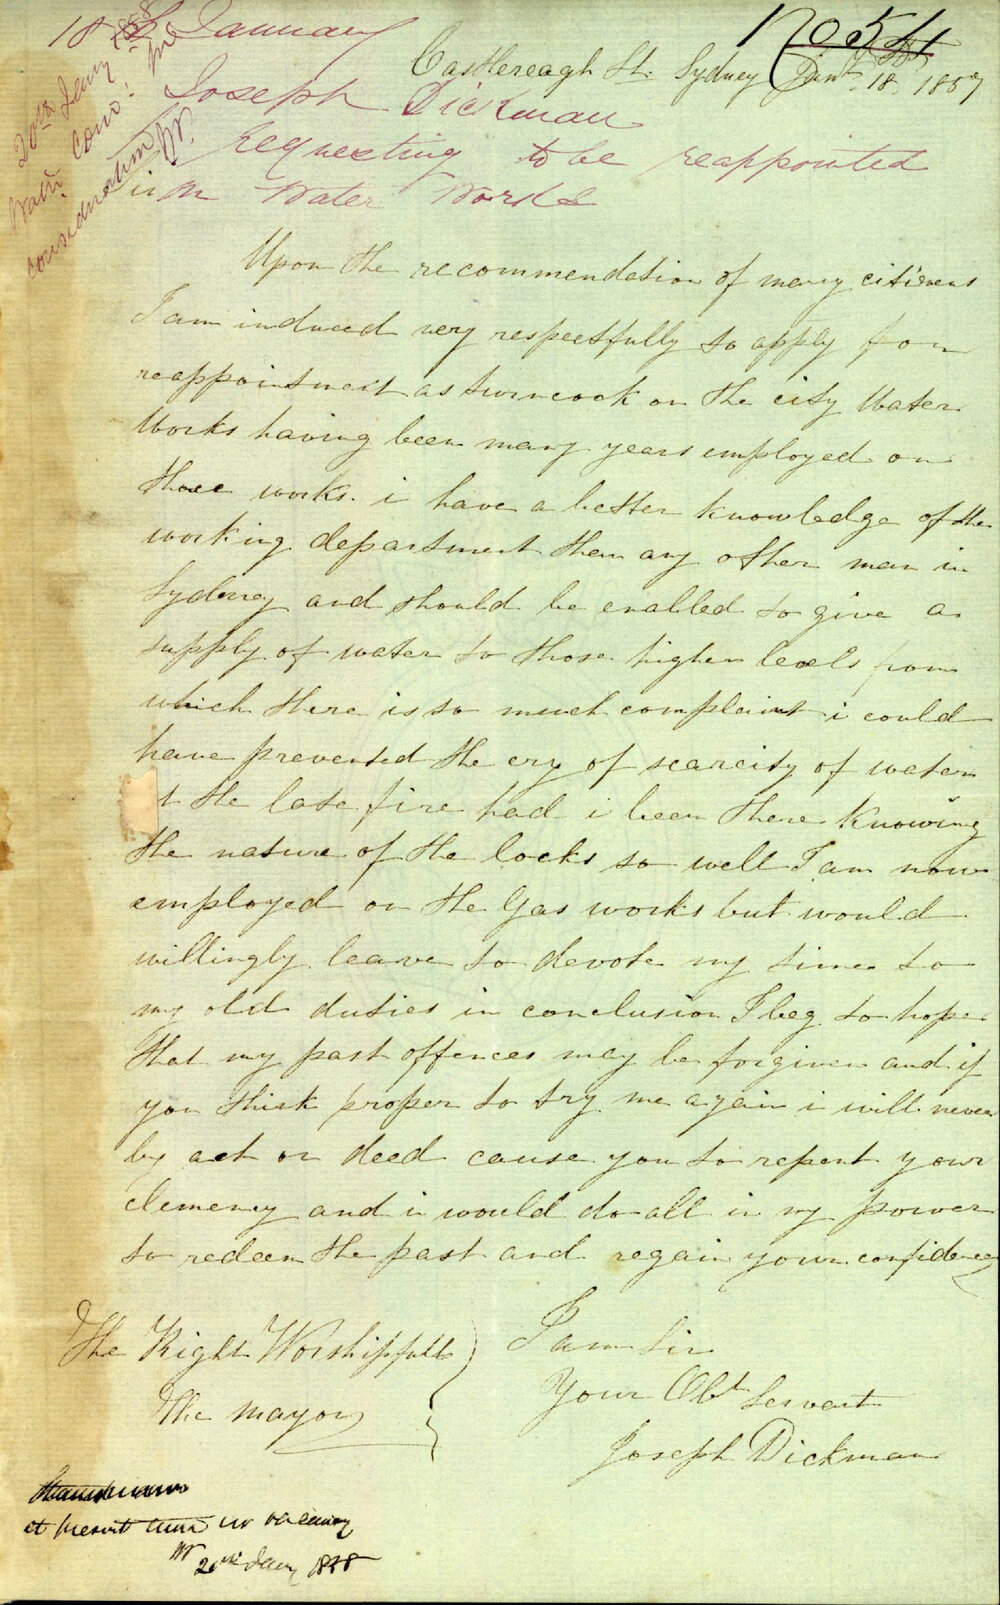 No 54
18th January
Castlereagh St. Sydney Jany 18, 1857
Joseph Dickman
Requesting to be reappointed
in the Water Works
20th Jany 1858
Water Com:
consideration
Upon the recommendation of many citizens
I am induced very respectfully to apply for
reappointment as turncock on the city Water
Works having been many years employed on
those works. i have a better knowledge of the
working department than any other man in
Sydney and should be enabled to give a
supply of water to those higher levels from
which there is so much complaint i could
have prevented the cry of scarcity of water
t the late fire had i been there knowing
the nature of the locks so well I am now
employed on the Gas works but would
willingly leave to devote my time to
my old duties in conclusion I beg to hope
that my past offences may be forgiven and if
you think proper to try me again i will never
by act or deed cause you to repent your
clemency and i would do all in my power
to redeem the past and regain your confidence
I am Sir
Your Obt Servant
Joseph Dickman
The Right Worshipfull
The Mayor
at present no vacancy
20th Jany 1858